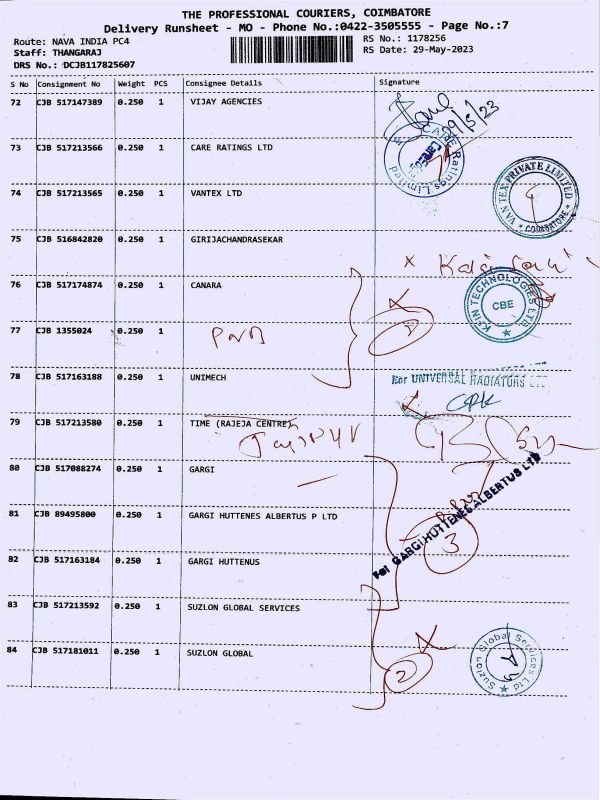 THE PROFESSIONAL COURIERS, COIMBATORE
Delivery Runsheet - MO - Phone No.:0422-3505555 - Page No.:7
Route: NAVA INDIA PC4 RS No.: 1178256
Staff: THANGARAJ RS Date: 29-May-2023
DRS No.: DCJB117825607
S No Consignment No Weight PCS Consignee Details Signature
72 CJB 517147389 0.250 1 VIJAY AGENCIES
73 CJB 517213566 0.250 1 CARE RATINGS LTD
CARE Ratings Limited
74 CJB 517213565 0.250 1 VANTEX LTD
VAN TEX PRIVATE LIMITED
* COIMBATORE *
75 CJB 516842820 0.250 1 GIRIJACHANDRASEKAR
76 CJB 517174874 0.250 1 CANARA
TECHNOLOGIES LTD
CBE
77 CJB 1355024 0.250 1
78 CJB 517163188 0.250 1 UNIMECH
For UNIVERSAL RADIATORS LTD
79 CJB 517213580 0.250 1 TIME (RAJEJA CENTRE)
80 CJB 517088274 0.250 1 GARGI
81 CJB 89495800 0.250 1 GARGI HUTTENES ALBERTUS P LTD
For GARGI HUTTENES ALBERTUS LTD
3
82 CJB 517163184 0.250 1 GARGI HUTTENUS
83 CJB 517213592 0.250 1 SUZLON GLOBAL SERVICES
84 CJB 517181011 0.250 1 SUZLON GLOBAL
2
Suzlon Global Services Ltd